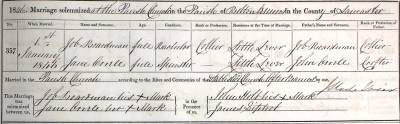 1846 Marriage solemnized at the Parish Church in the Parish of Bolton in the County of Lancaster
No. When Married. Name and Surname. Age. Condition. Rank or Profession. Residence at the Time of Marriage. Father's Name and Surname. Rank or Profession of Father.
357 January 1846 Job Boardman full Bachelor Collier Little Lever Job Boardman Collier
Jane full Spinster Little Lever John
Married in the Parish Church according to the Rites and Ceremonies of the Established Church after Banns by me,
This Marriage was solemnized between us, Job Boardman his X Mark
Jane her X Mark
in the Presence of us, John Holt his X Mark
James